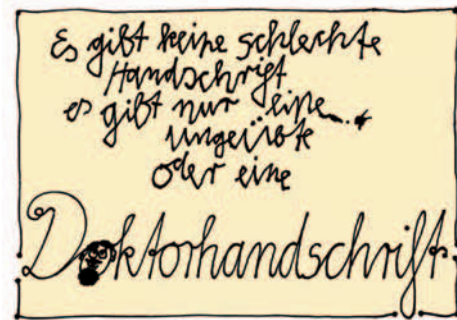 Es gibt keine schlechte
Handschrift
es gibt nur eine
ungeübte
oder eine
Doktorhandschrift